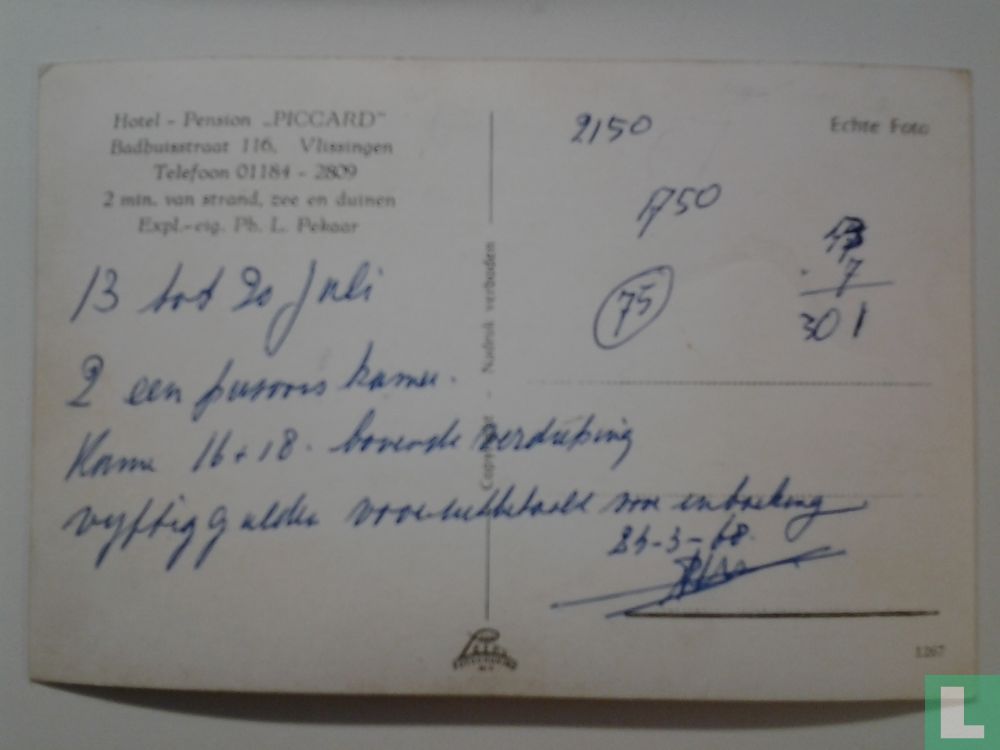 Hotel - Pension „PICCARD"
Badhuisstraat 116, Vlissingen
Telefoon 01184 - 2809
2 min. van strand, zee en duinen
Expl.-eig. Ph. L. Pekaar
13 tot 20 Juli
2 een persoons kamer.
Kamer 16 + 18. bovenste verdieping
vyftig gulden vooruitbetaald voor inboeking
25-3-68.
Nadruk verboden
Echte Foto
2150
1750
75
7
301
1267
L